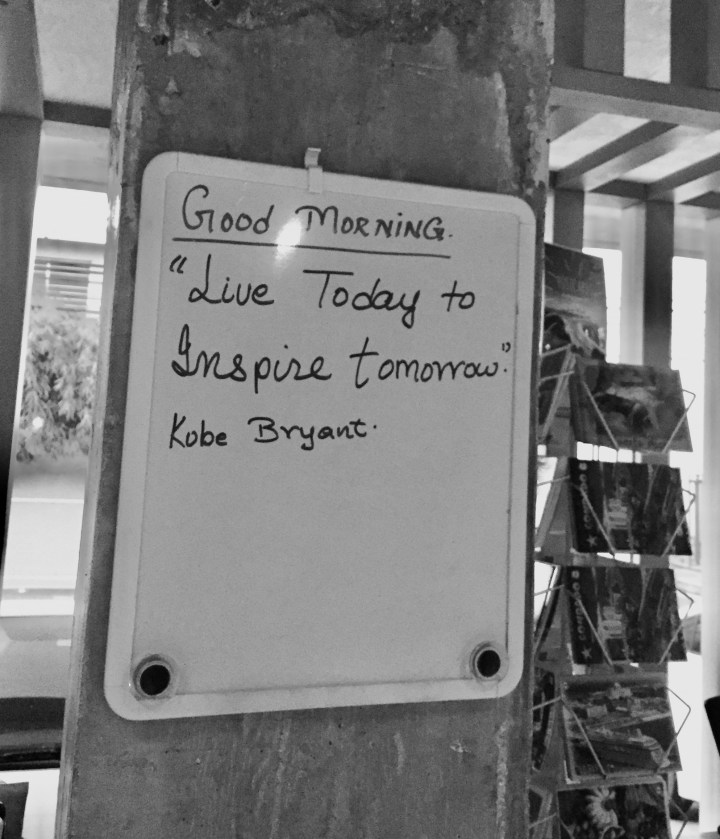 Good MORNiNG.
"Live Today to
Inspire tomorrow."
Kobe Bryant.